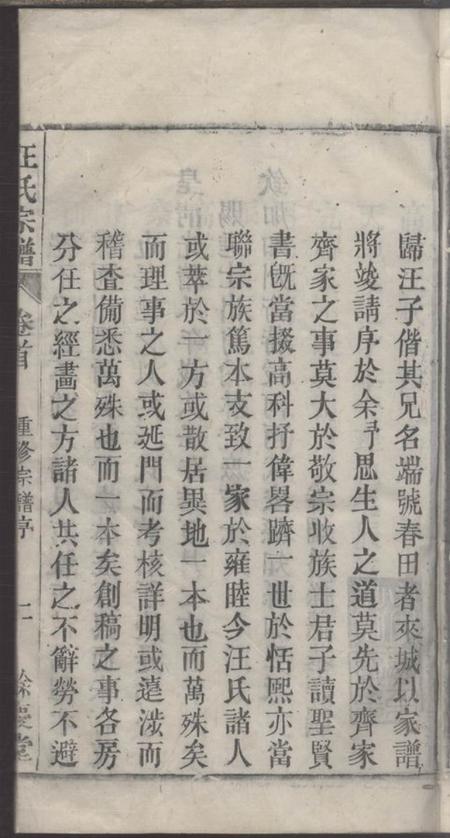 歸汪子偕其兄名端號春田者來城以家譜
將竣請序於余予思生人之道莫先於齊家
齊家之事莫大於敬宗收族士君子讀聖賢
書既當掇高科抒偉畧躋一世於恬熙亦當
聯宗族篤本支致一家於雍睦今汪氏諸人
或萃於一方或散居異地一本也而萬殊矣
而理事之人或延門而考核詳明或遠涉而
稽查備悉萬殊也而一本矣創稿之事各房
分任之經畫之方諸人共任之不辭勞不避
汪氏宗譜 卷首 重修宗譜序 二 餘慶堂